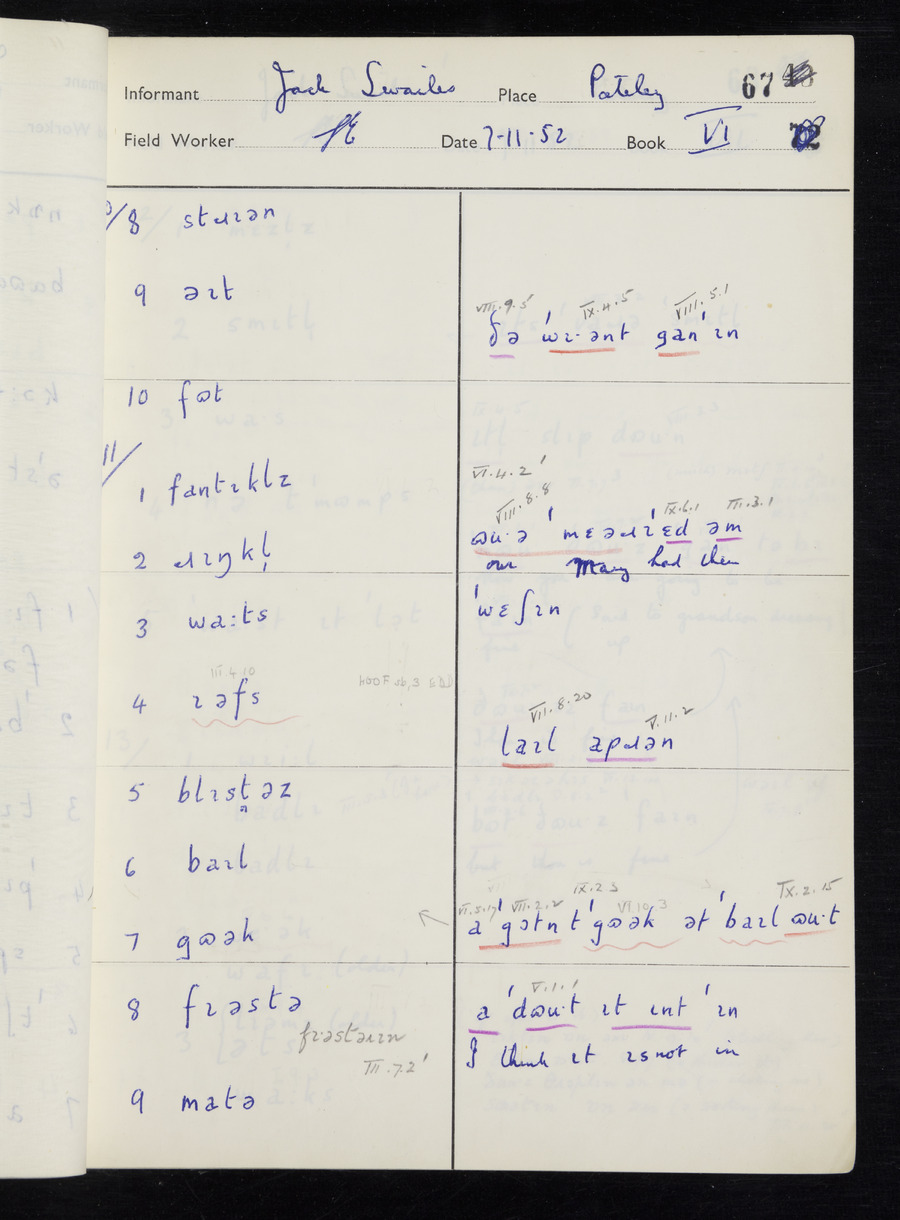 Informant Jack Swailes Place Pateley 67
Field Worker Date 7-11-52 Book VI
8 stɹɪən
9 əɪt
VIII.9.5 IX.4.5 VIII.5.1
ðə ˈwɪ·ənt ganˈ ɪn
10 fɷt
11/
1 fantɪklz
VI.4.2
VIII.8.8 IX.6.1 III.3.1
ɷu·ə ˈmɛəɹɪˈɛd əm
our Mary had them
2 ɹɪŋkl̩
3 wa:ts
ˈwɛʃɪn
III.4.10
4 ɪəfs
VII.8.20 V.11.2
laɪl apɹən
5 blɪstəz
6 baɪl
VI.5.17 VII.2.2 IX.2.3 VI.10.3 IX.2.15
7 gɷək
aˈ gɔtn tˈ gɷək ətˈ baɪl ɷu·t
8 fɪəstə
V.1.1
a ˈdɷu·t ɪt ɪntˈ ɪn
III.7.2
I think ɪt ɪs not in
9 matə